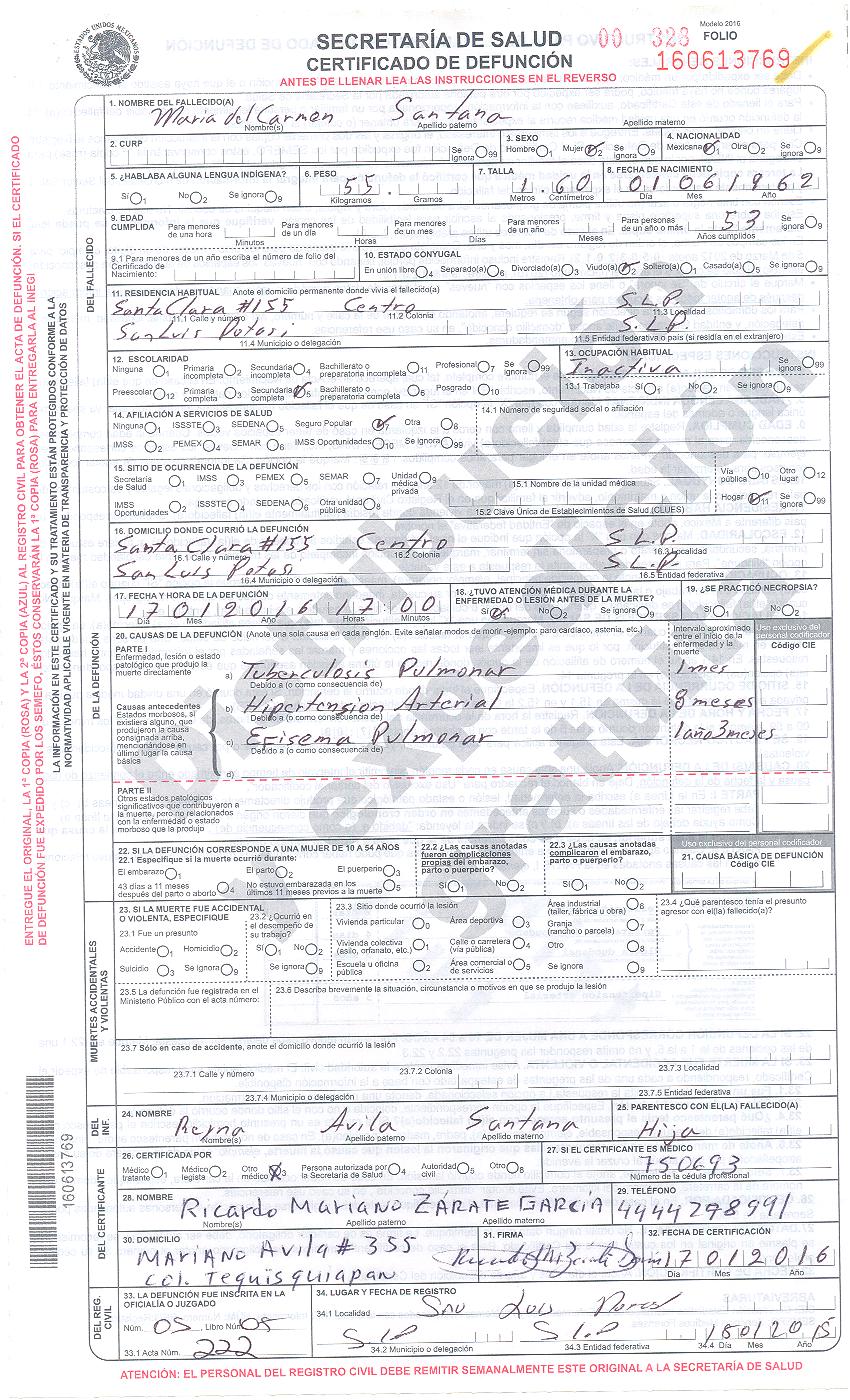 ESTADOS UNIDOS MEXICANOS
SECRETARÍA DE SALUD
CERTIFICADO DE DEFUNCIÓN
ANTES DE LLENAR LEA LAS INSTRUCCIONES EN EL REVERSO
Modelo 2016
FOLIO
00 328
160613769
ENTREGUE EL ORIGINAL, LA 1ª COPIA (ROSA) Y LA 2ª COPIA (AZUL) AL REGISTRO CIVIL PARA OBTENER EL ACTA DE DEFUNCIÓN. SI EL CERTIFICADO
DE DEFUNCIÓN FUE EXPEDIDO POR LOS SEMEFO, ÉSTOS CONSERVARÁN LA 1ª COPIA (ROSA) PARA ENTREGARLA AL INEGI
LA INFORMACIÓN EN ESTE CERTIFICADO Y SU TRATAMIENTO ESTÁN PROTEGIDOS CONFORME A LA
NORMATIVIDAD APLICABLE VIGENTE EN MATERIA DE TRANSPARENCIA Y PROTECCIÓN DE DATOS
DEL FALLECIDO
1. NOMBRE DEL FALLECIDO(A)
Maria del Carmen Santana
Nombre(s) Apellido paterno Apellido materno
2. CURP Se ignora 99
3. SEXO Hombre 1 Mujer 2 Se ignora 9
4. NACIONALIDAD Mexicana 1 Otra 2 Se ignora 9
5. ¿HABLABA ALGUNA LENGUA INDÍGENA?
Sí 1 No 2 Se ignora 9
6. PESO
55 .
Kilogramos Gramos
7. TALLA
1.60
Metros Centímetros
8. FECHA DE NACIMIENTO
01 06 1962
Día Mes Año
9. EDAD CUMPLIDA
Para menores de una hora Minutos
Para menores de un día Horas
Para menores de un mes Días
Para menores de un año Meses
Para personas de un año o más 53 Años cumplidos
Se ignora 9
9.1 Para menores de un año escriba el número de folio del Certificado de Nacimiento:
10. ESTADO CONYUGAL
En unión libre 4 Separado(a) 6 Divorciado(a) 3 Viudo(a) 2 Soltero(a) 1 Casado(a) 5 Se ignora 9
11. RESIDENCIA HABITUAL Anote el domicilio permanente donde vivía el fallecido(a)
Santa Clara #155 Centro S.L.P.
11.1 Calle y número 11.2 Colonia 11.3 Localidad
San Luis Potosi S.L.P.
11.4 Municipio o delegación 11.5 Entidad federativa o país (si residía en el extranjero)
12. ESCOLARIDAD
Ninguna 1 Primaria incompleta 2 Secundaria incompleta 4 Bachillerato o preparatoria incompleta 11 Profesional 7 Se ignora 99
Preescolar 12 Primaria completa 3 Secundaria completa 5 Bachillerato o preparatoria completa 6 Posgrado 10
13. OCUPACIÓN HABITUAL
Inactiva Se ignora 99
13.1 Trabajaba Sí 1 No 2 Se ignora 9
14. AFILIACIÓN A SERVICIOS DE SALUD
Ninguna 1 ISSSTE 3 SEDENA 5 Seguro Popular 7 Otra 8
IMSS 2 PEMEX 4 SEMAR 6 IMSS Oportunidades 10 Se ignora 99
14.1 Número de seguridad social o afiliación
DE LA DEFUNCIÓN
15. SITIO DE OCURRENCIA DE LA DEFUNCIÓN
Secretaría de Salud 1 IMSS 3 PEMEX 5 SEMAR 7 Unidad médica privada 9
IMSS Oportunidades 2 ISSSTE 4 SEDENA 6 Otra unidad pública 8
15.1 Nombre de la unidad médica
15.2 Clave Única de Establecimientos de Salud (CLUES)
Vía pública 10 Otro lugar 12
Hogar 11 Se ignora 99
16. DOMICILIO DONDE OCURRIÓ LA DEFUNCIÓN
Santa Clara #155 Centro S.L.P.
16.1 Calle y número 16.2 Colonia 16.3 Localidad
San Luis Potosi S.L.P.
16.4 Municipio o delegación 16.5 Entidad federativa
17. FECHA Y HORA DE LA DEFUNCIÓN
17 01 2016 17:00
Día Mes Año Horas Minutos
18. ¿TUVO ATENCIÓN MÉDICA DURANTE LA ENFERMEDAD O LESIÓN ANTES DE LA MUERTE?
Sí 1 No 2 Se ignora 9
19. ¿SE PRACTICÓ NECROPSIA?
Sí 1 No 2
20. CAUSAS DE LA DEFUNCIÓN (Anote una sola causa en cada renglón. Evite señalar modos de morir-ejemplo: paro cardíaco, astenia, etc.)
Intervalo aproximado entre el inicio de la enfermedad y la muerte
Uso exclusivo del personal codificador
Código CIE
PARTE I
Enfermedad, lesión o estado patológico que produjo la muerte directamente
a) Tuberculosis Pulmonar 1 mes
Debido a (o como consecuencia de)
Causas antecedentes
Estados morbosos, si existiera alguno, que produjeron la causa consignada arriba, mencionándose en último lugar la causa básica
b) Hipertension Arterial 8 meses
Debido a (o como consecuencia de)
c) Efisema Pulmonar 1 año 3 meses
Debido a (o como consecuencia de)
d)
PARTE II
Otros estados patológicos significativos que contribuyeron a la muerte, pero no relacionados con la enfermedad o estado morboso que la produjo
Distribución
y expedición
gratuita
22. SI LA DEFUNCIÓN CORRESPONDE A UNA MUJER DE 10 A 54 AÑOS
22.1 Especifique si la muerte ocurrió durante:
El embarazo 1 El parto 2 El puerperio 3
43 días a 11 meses después del parto o aborto 4 No estuvo embarazada en los últimos 11 meses previos a la muerte 5
22.2 ¿Las causas anotadas fueron complicaciones propias del embarazo, parto o puerperio?
Sí 1 No 2
22.3 ¿Las causas anotadas complicaron el embarazo, parto o puerperio?
Sí 1 No 2
Uso exclusivo del personal codificador
21. CAUSA BÁSICA DE DEFUNCIÓN
Código CIE
MUERTES ACCIDENTALES Y VIOLENTAS
23. SI LA MUERTE FUE ACCIDENTAL O VIOLENTA, ESPECIFIQUE
23.1 Fue un presunto
Accidente 1 Homicidio 2
Suicidio 3 Se ignora 9
23.2 ¿Ocurrió en el desempeño de su trabajo?
Sí 1 No 2
Se ignora 9
23.3 Sitio donde ocurrió la lesión
Vivienda particular 0 Área deportiva 3 Área industrial (taller, fábrica u obra) 6
Vivienda colectiva (asilo, orfanato, etc.) 1 Calle o carretera (vía pública) 4 Granja (rancho o parcela) 7
Escuela u oficina pública 2 Área comercial o de servicios 5 Otro 8
Se ignora 9
23.4 ¿Qué parentesco tenía el presunto agresor con el(la) fallecido(a)?
23.5 La defunción fue registrada en el Ministerio Público con el acta número:
23.6 Describa brevemente la situación, circunstancia o motivos en que se produjo la lesión
23.7 Sólo en caso de accidente, anote el domicilio donde ocurrió la lesión
23.7.1 Calle y número 23.7.2 Colonia 23.7.3 Localidad
23.7.4 Municipio o delegación 23.7.5 Entidad federativa
DEL INF.
24. NOMBRE
Reyna Avila Santana
Nombre(s) Apellido paterno Apellido materno
25. PARENTESCO CON EL(LA) FALLECIDO(A)
Hija
DEL CERTIFICANTE
26. CERTIFICADA POR
Médico tratante 1 Médico legista 2 Otro médico 3 Persona autorizada por la Secretaría de Salud 4 Autoridad civil 5 Otro 8
27. SI EL CERTIFICANTE ES MÉDICO
750693
Número de la cédula profesional
28. NOMBRE
Ricardo Mariano ZÁRATE GARCÍA
Nombre(s) Apellido paterno Apellido materno
29. TELÉFONO
4444298991
30. DOMICILIO
MARIANO Avila # 355
Col. Tequisquiapan
31. FIRMA
32. FECHA DE CERTIFICACIÓN
17 01 2016
Día Mes Año
DEL REG. CIVIL
33. LA DEFUNCIÓN FUE INSCRITA EN LA OFICIALÍA O JUZGADO
Núm. 05 Libro Núm. 05
33.1 Acta Núm. 222
34. LUGAR Y FECHA DE REGISTRO
34.1 Localidad San Luis Potosi
S.L.P S.L.P 18 01 2015
34.2 Municipio o delegación 34.3 Entidad federativa 34.4 Día Mes Año
160613769
ATENCIÓN: EL PERSONAL DEL REGISTRO CIVIL DEBE REMITIR SEMANALMENTE ESTE ORIGINAL A LA SECRETARÍA DE SALUD